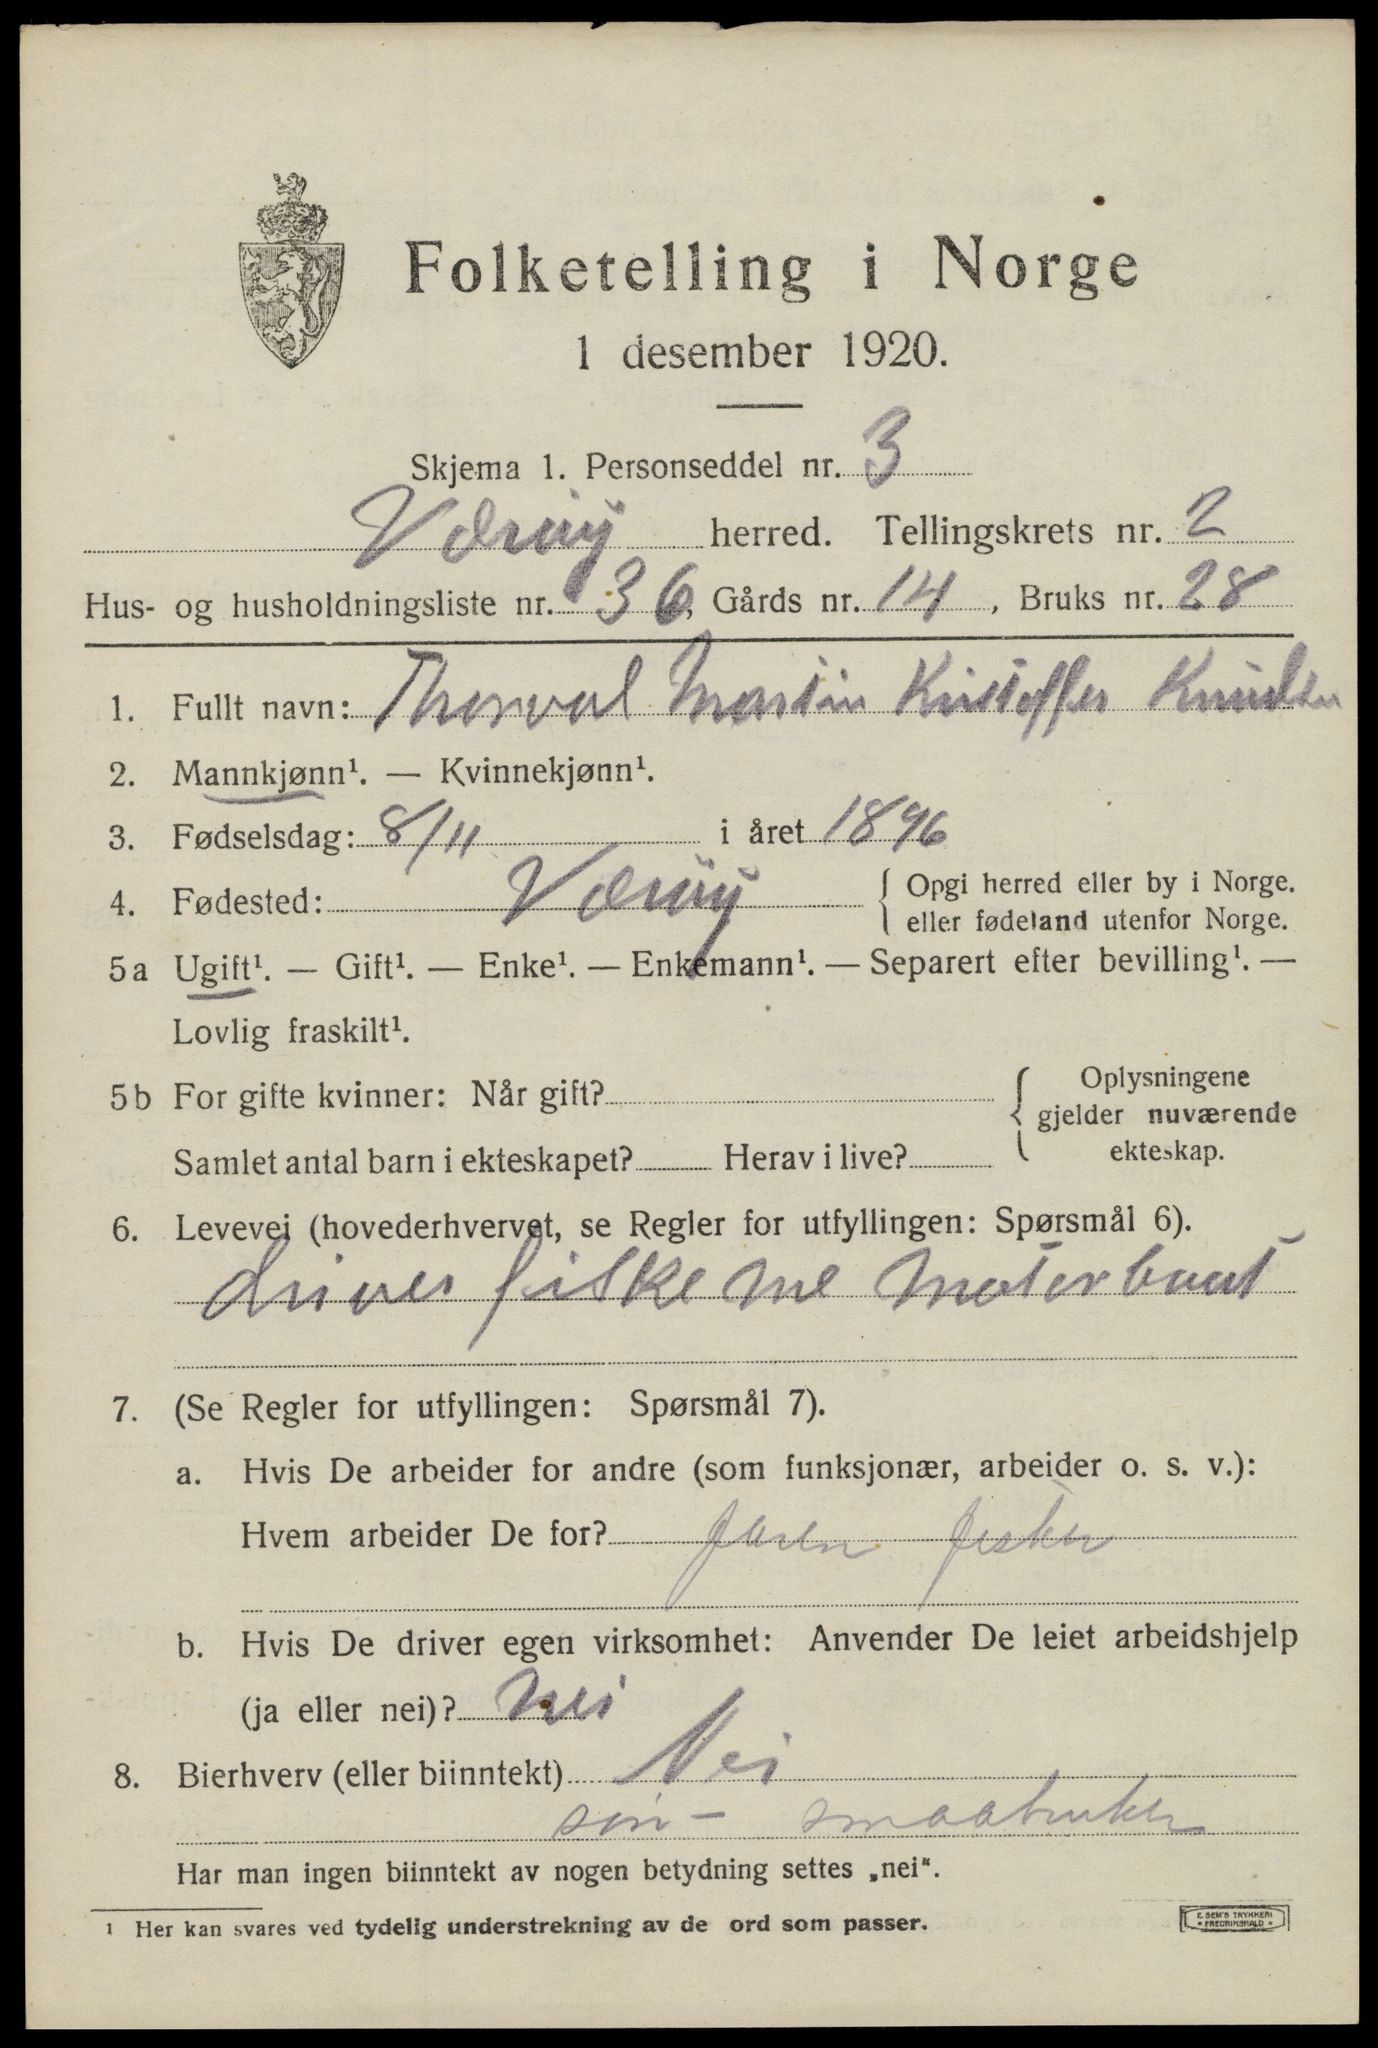 Folketelling i Norge
1 desember 1920.
Skjema 1. Personseddel nr. 3
Værøy herred. Tellingskrets nr. 2
Hus- og husholdningsliste nr. 36, Gårds nr. 14, Bruks nr. 28
1. Fullt navn: Thorval Martin Kristoffer Knudsen
2. Mannkjønn¹. — Kvinnekjønn¹.
3. Fødselsdag: 8/11 i året 1896
4. Fødested: Værøy { Opgi herred eller by i Norge.
eller fødeland utenfor Norge.
5a Ugift¹. — Gift¹. — Enke¹. — Enkemann¹. — Separert efter bevilling¹. —
Lovlig fraskilt¹.
5b For gifte kvinner: Når gift? { Oplysningene
gjelder nuværende
ekteskap.
Samlet antal barn i ekteskapet? Herav i live?
6. Levevei (hovederhvervet, se Regler for utfyllingen: Spørsmål 6).
driver fiske me Motorbaat
7. (Se Regler for utfyllingen: Spørsmål 7).
a. Hvis De arbeider for andre (som funksjonær, arbeider o. s. v.):
Hvem arbeider De for? fisker
b. Hvis De driver egen virksomhet: Anvender De leiet arbeidshjelp
(ja eller nei)? nei
8. Bierhverv (eller biinntekt) Nei
søn - smaabruker
Har man ingen biinntekt av nogen betydning settes „nei“.
¹ Her kan svares ved tydelig understrekning av de ord som passer.
E. SEM'S TRYKKERI
• FREDRIKSHALD •